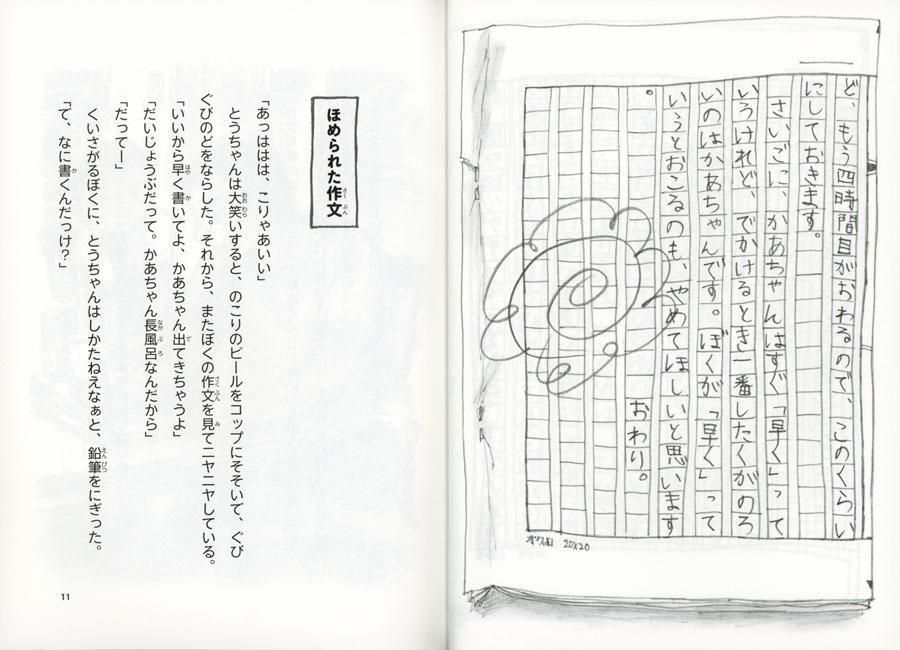 ど、もう四時間目がおわるので、このくらい
にしておきます。
さいごに、かあちゃんはすぐ「早く」って
いうけれど、でかけるとき一番したくがのろ
いのはかあちゃんです。ぼくが「早く」って
いうとおこるのも、やめてほしいと思います
。
おわり。
20×20
ほめられた作文
「あっははは、こりゃあいい」
とうちゃんは大笑いすると、のこりのビールをコップにそそいで、ぐび
ぐびのどをならした。それから、またぼくの作文を見てニヤニヤしている。
「いいから早く書いてよ、かあちゃん出てきちゃうよ」
「だいじょうぶだって。かあちゃん長風呂なんだから」
「だってー」
くいさがるぼくに、とうちゃんはしかたねえなぁと、鉛筆をにぎった。
「て、なに書くんだっけ？」
11